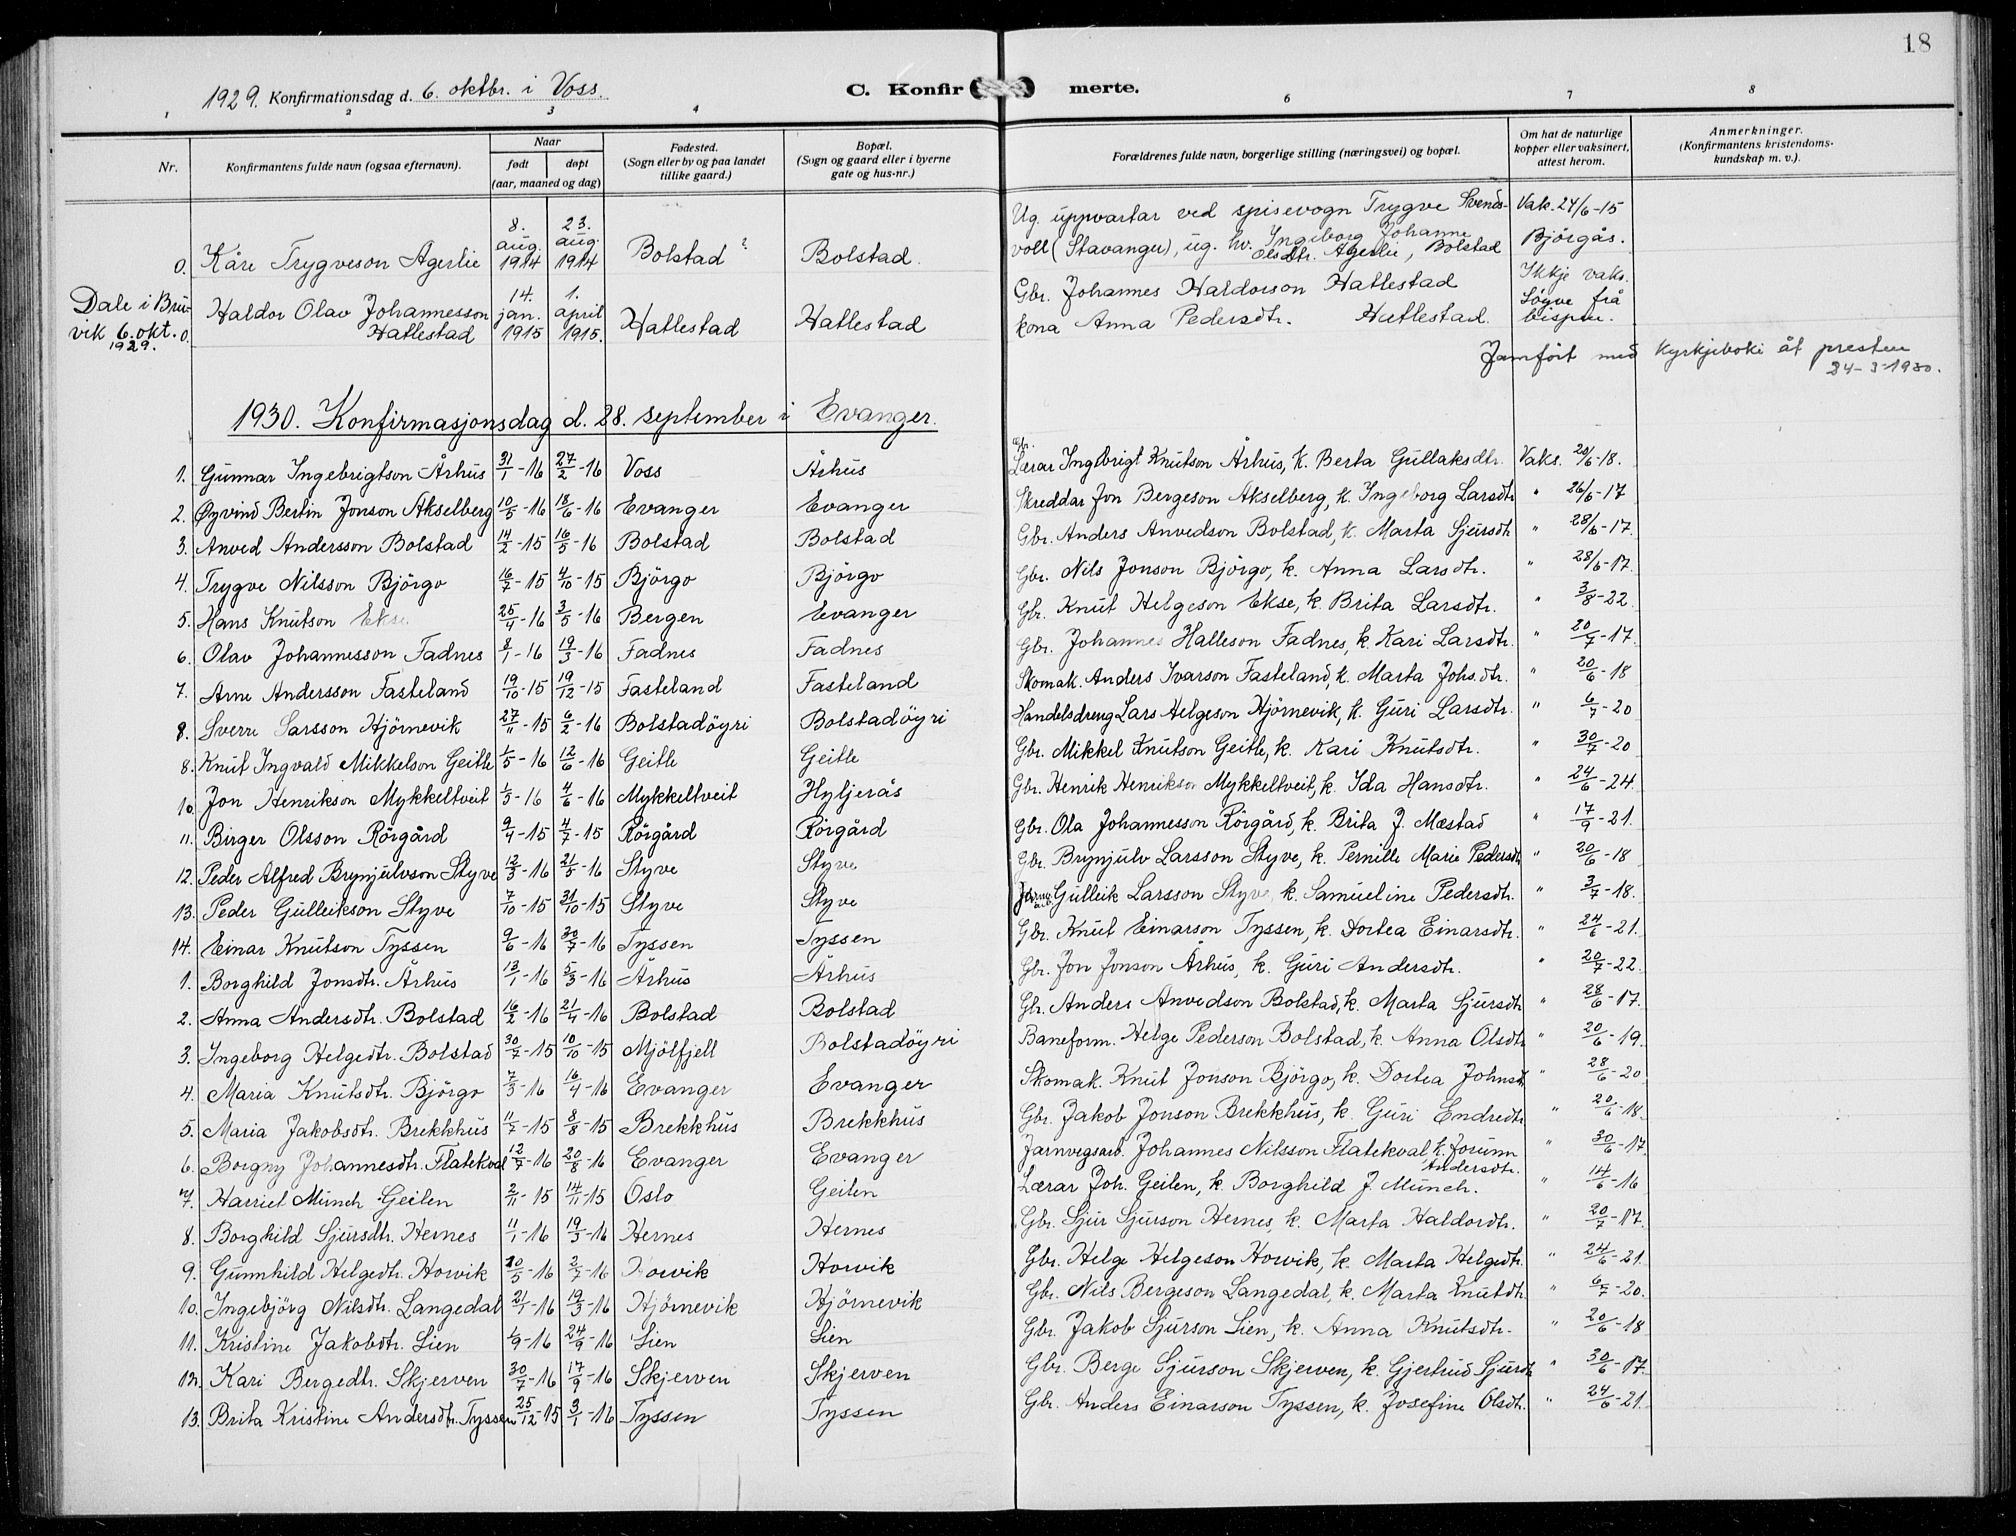 18
1929. Konfirmationsdag d. 6. oktbr. i Voss.
C. Konfir merte.
1 2 3 4 6 7 8
Nr.
Konfirmantens fulde navn (ogsaa efternavn).
Naar
født døpt
(aar, maaned og dag)
Fødested.
(Sogn eller by og paa landet
tillike gaard.)
Bopæl.
(Sogn og gaard eller i byerne
gate og hus-nr.)
Forældrenes fulde navn, borgerlige stilling (næringsvei) og bopæl.
Om hat de naturlige
kopper eller vaksinert,
attest herom.
Anmerkninger.
(Konfirmantens kristendoms-
kundskap m. v.).
0. Kåre Trygveson Agerlie 8. aug. 1914 23. aug. 1914 Bolstad? Bolstad. Ug. uppvartar ved spisevogn Trygve Svends- Vak. 24/6-15
voll (Stavanger), ug. hv. Ingeborg Johanne Olsdtr. Agerlie, Bolstad Bjørgås.
Dale i Bru-
vik 6. okt.
1929.
0. Haldor Olav Johannesson Hatlestad 14. jan. 1915 1. april 1915. Hatlestad Hatlestad Gbr. Johannes Haldorson Hatlestad Ikkje vaks.
kona Anna Pedersdtr. Hatlestad. Løyve frå bispen.
Jamført med kyrkjeboki åt presten
24-3-1930.
1930. Konfirmasjonsdag d. 28. september i Evanger.
1. Gunnar Ingebrigtson Århus 31/1-16 27/2-16 Voss Århus Gbr. Lærar Ingebrigt Knutson Århus, k. Berta Gullaksdtr. Vaks. 20/6-18.
2. Øyvind Bertin Jonson Akselberg 10/5-16 18/6-16 Evanger Evanger Skreddar Jon Bergeson Akselberg, k. Ingeborg Larsdtr " 26/6-17
3. Anved Andersson Bolstad 14/2-15 16/5-16 Bolstad Bolstad Gbr. Anders Anvedson Bolstad, k. Marta Sjursdtr " 28/6-17.
4. Trygve Nilsson Bjørgo 16/7-15 4/10-15 Bjørgo Bjørgo Gbr. Nils Jonson Bjørgo, k. Anna Larsdtr. " 28/6-17.
5. Hans Knutson Ekse 25/4-16 3/5-16 Bergen Evanger Gbr. Knut Helgeson Ekse, k. Brita Larsdtr. " 3/8-22
6. Olav Johannesson Fadnes 8/1-16 19/3-16 Fadnes Fadnes Gbr. Johannes Halleson Fadnes, k. Kari Larsdtr. " 20/7-17.
7. Arne Andersson Fasteland 19/10-15 19/12-15 Fasteland Fasteland Skomak. Anders Ivarson Fasteland, k. Marta Johs.dtr. " 20/6-18
8. Sverre Larsson Hjørnevik 27/11-15 6/2-16 Bolstadøyri Bolstadøyri Handelsdreng Lars Helgeson Hjørnevik, k. Guri Larsdtr. " 6/7-20
8. Knut Ingvald Mikkelson Geitle 1/5-16 12/6-16 Geitle Geitle Gbr. Mikkel Knutson Geitle, k. Kari Knutsdtr. " 30/7-20
10. Jon Henrikson Mykkeltveit 1/3-16 4/6-16 Mykkeltveit Hyljerås Gbr. Henrik Henrikson Mykkeltveit, k. Ida Hansdtr. " 24/6-24.
11. Birger Olsson Rørgård 9/4-15 4/7-15 Rørgård Rørgård Gbr. Ola Johannesson Rørgård, k. Brita J. Mæstad " 17/9-21.
12. Peder Alfred Brynjulvson Styve 12/3-16 21/5-16 Styve Styve Gbr. Brynjulv Larsson Styve, k. Pernille Marie Pedersdtr " 20/6-18
13. Peder Gulleikson Styve 7/10-15 31/10-15 Styve Styve Gulleik Larsson Styve, k. Samueline Pedersdtr. " 3/7-18.
14. Einar Knutson Tyssen 9/6-16 30/7-16 Tyssen Tyssen Gbr. Knut Einarson Tyssen, k. Dortea Einarsdtr. " 24/6-21.
1. Borghild Jonsdtr. Århus 13/1-16 5/3-16 Århus Århus Gbr. Jon Jonson Århus, k. Guri Andersdtr. " 20/7-22.
2. Anna Andersdtr. Bolstad 16/2-16 21/4-16 Bolstad Bolstad Gbr. Anders Anvedson Bolstad, k. Marta Sjursdtr " 28/6-17.
3. Ingeborg Helgedtr. Bolstad 30/7-15 10/10-15 Mjølfjell Bolstadøyri Baneform. Helge Pederson Bolstad, k. Anna Olsdtr " 20/6-19.
4. Maria Knutsdtr. Bjørgo 7/3-16 16/4-16 Evanger Evanger Skomak. Knut Jonson Bjørgo, k. Dortea Johnsd. " 28/6-20
5. Maria Jakobsdtr. Brekkhus 11/7-15 8/8-15 Brekkhus Brekkhus Gbr. Jakob Jonson Brekkhus, k. Guri Endredtr " 20/6-18.
6. Borgny Johannesdtr. Flatekval 12/7-16 20/8-16 Evanger Evanger Jarnvegsarb. Johannes Nilsson Flatekval, k. Jorunn Andersdtr. " 30/6-17
7. Harriet Münch Geilen 2/11-15 14/11-15 Oslo Geilen Lærar Joh. Geilen, k. Borghild J. Münch. " 14/6-16
8. Borghild Sjursdtr. Hernes 11/1-16 19/3-16 Hernes Hernes Gbr. Sjur Sjurson Hernes, k. Marta Haldordtr. " 20/7-17.
9. Gunnhild Helgedtr. Horvik 20/5-16 2/7-16 Horvik Horvik Gbr. Helge Helgeson Horvik, k. Marta Helgedtr. " 24/6-21.
10. Ingebjørg Nilsdtr. Langedal 21/1-16 19/3-16 Hjørnevik Hjørnevik Gbr. Nils Bergeson Langedal, k. Marta Knutdtr " 6/7-20.
11. Kristine Jakobdtr. Lien 1/9-16 24/9-16 Lien Lien Gbr. Jakob Sjurson Lien, k. Anna Knutsdtr. " 20/6-18
12. Kari Bergedtr. Skjerven 30/7-16 17/9-16 Skjerven Skjerven Gbr. Berge Sjurson Skjerven, k. Gjertrud Sjurdtr " 30/6-17.
13. Brita Kristine Andersdtr. Tyssen 25/12-15 3/1-16 Tyssen Tyssen Gbr. Anders Einarson Tyssen, k. Josefine Olsdtr. " 24/6-21.